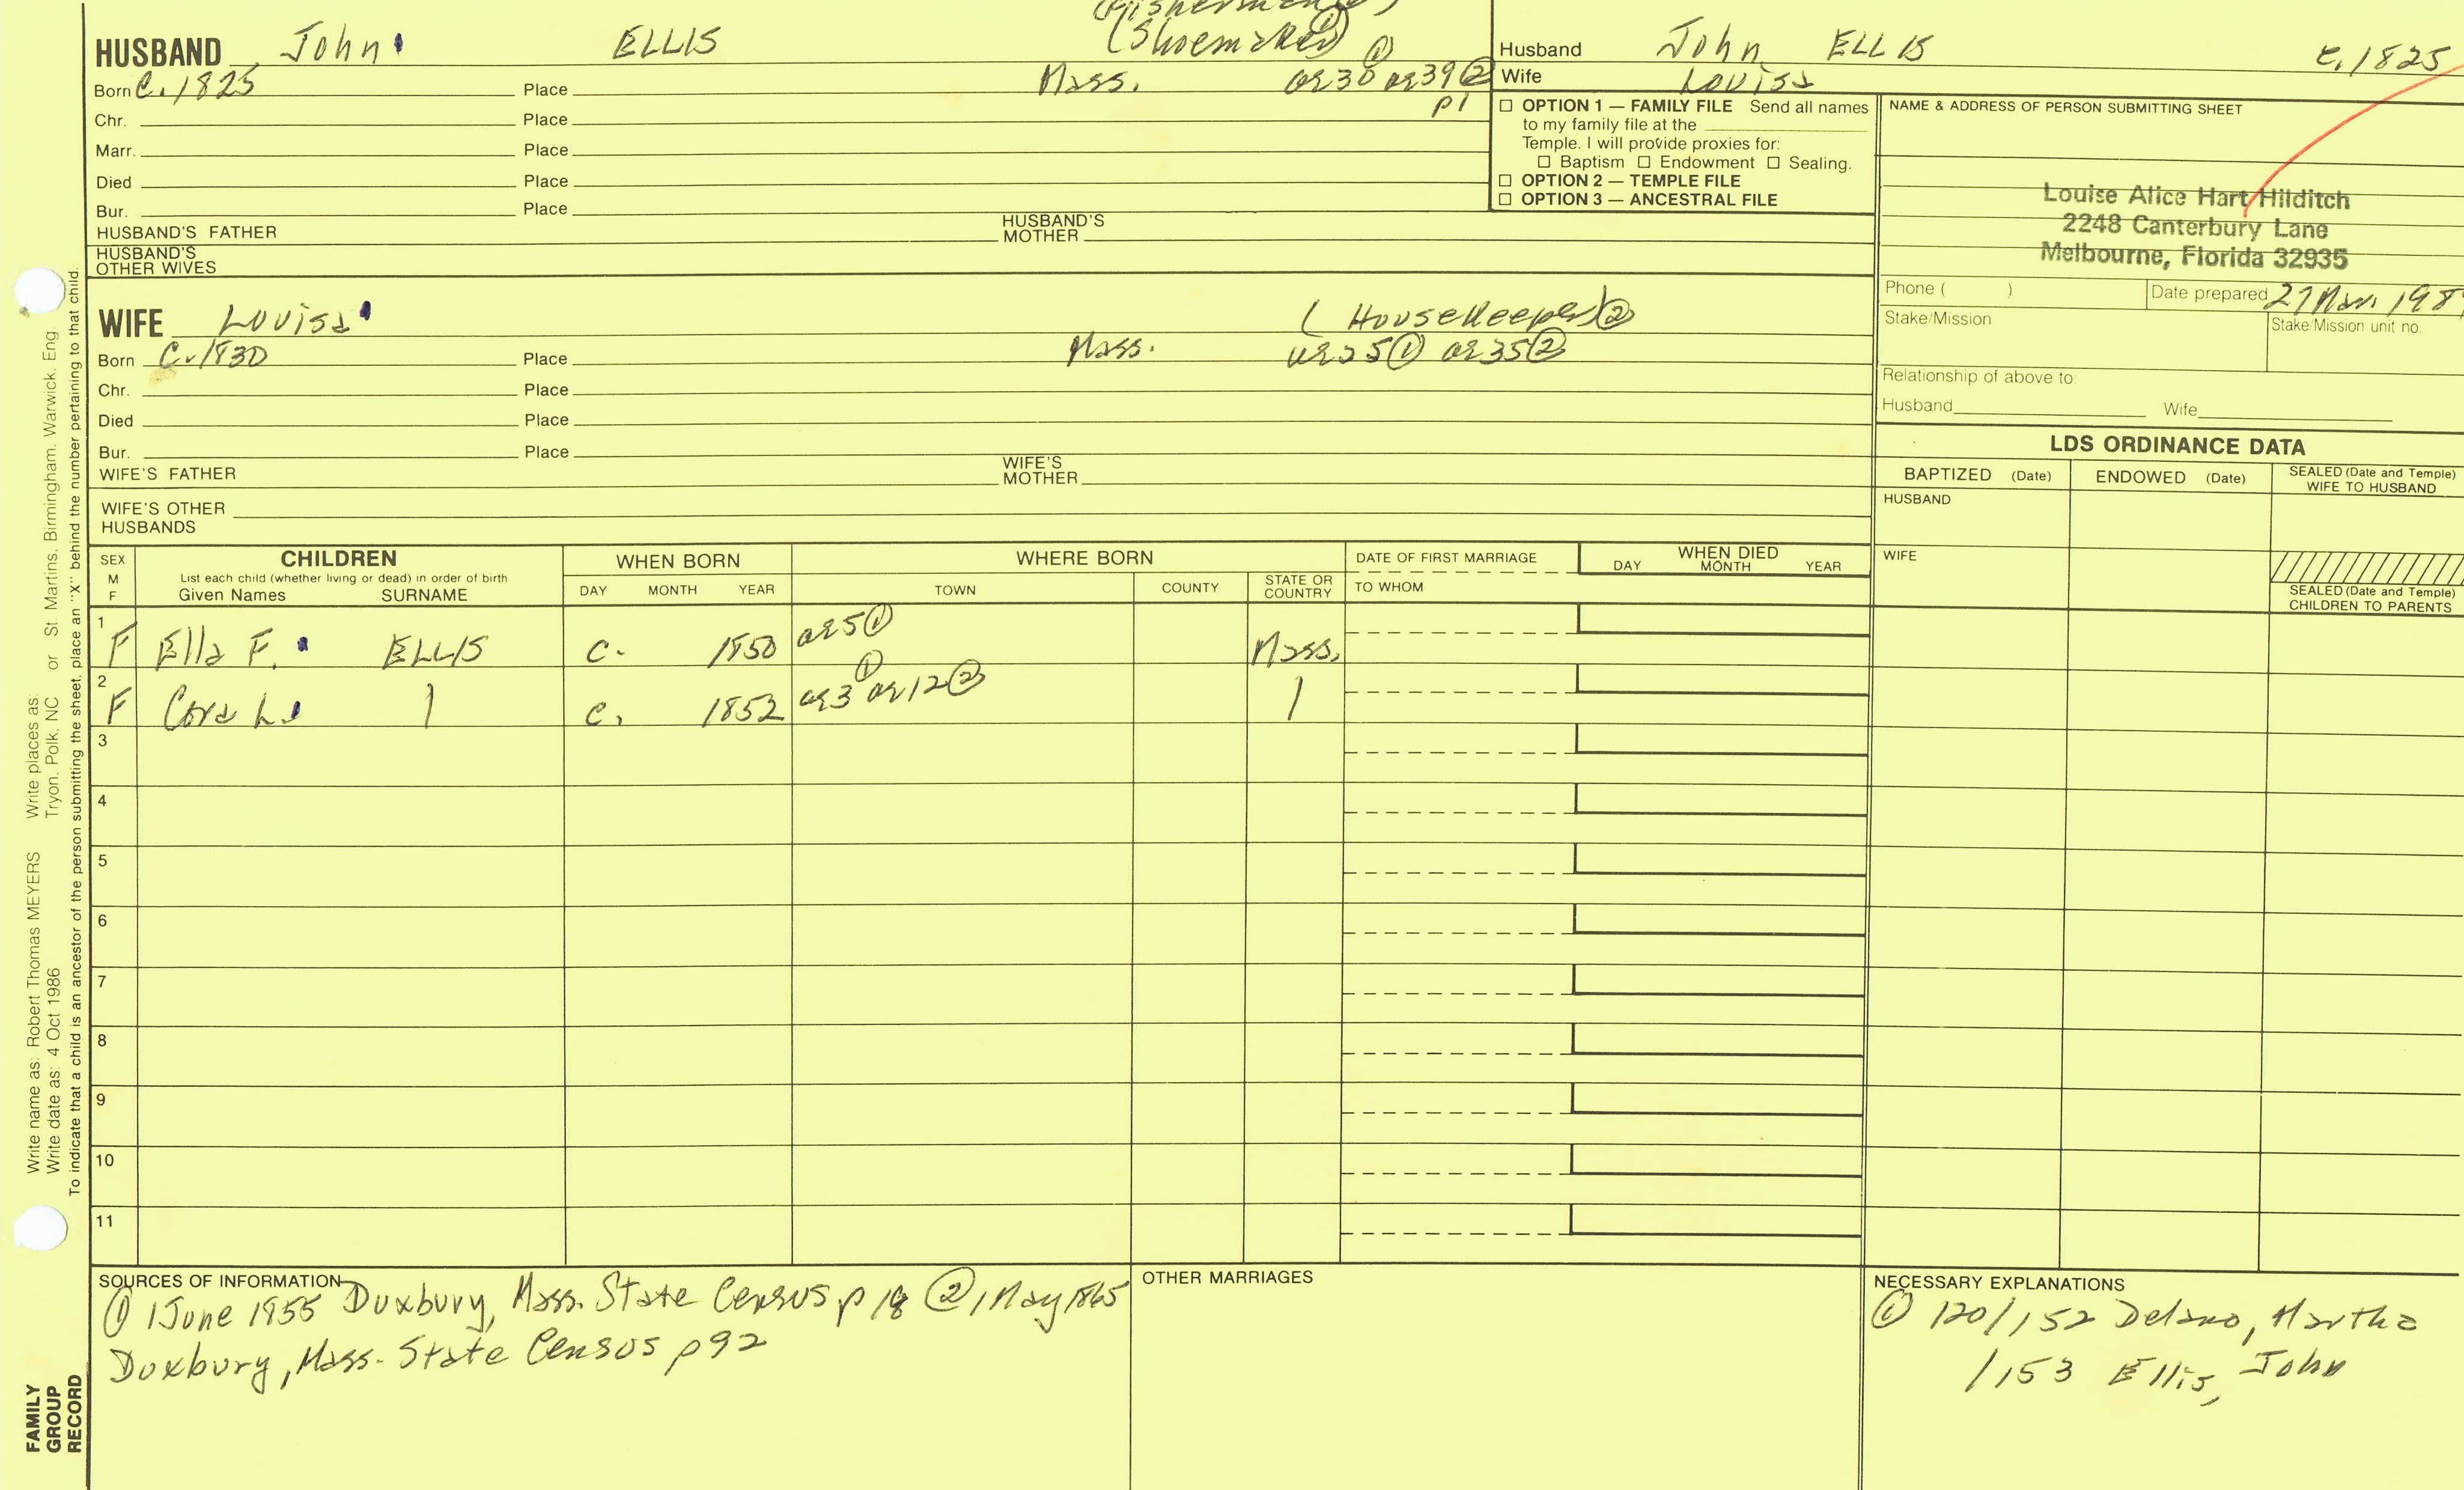 (Fisherman
HUSBAND John ELLIS (Shoemaker) ①
Born C. 1825 Place Mass. ae30 ① ae39 ②
p1
Chr. Place
Marr. Place
Died Place
Bur. Place
HUSBAND'S FATHER HUSBAND'S MOTHER
HUSBAND'S OTHER WIVES
WIFE Louisa (Housekeeper) ②
Born C. 1830 Place Mass. ae25 ① ae35 ②
Chr. Place
Died Place
Bur. Place
WIFE'S FATHER WIFE'S MOTHER
WIFE'S OTHER HUSBANDS
Husband John ELLIS c. 1825
Wife Louisa
☐ OPTION 1 — FAMILY FILE Send all names
to my family file at the
Temple. I will provide proxies for:
☐ Baptism ☐ Endowment ☐ Sealing.
☐ OPTION 2 — TEMPLE FILE
☐ OPTION 3 — ANCESTRAL FILE
NAME & ADDRESS OF PERSON SUBMITTING SHEET
Louise Alice Hart Hilditch
2248 Canterbury Lane
Melbourne, Florida 32935
Phone ( ) Date prepared 27 Mar. 198
Stake/Mission Stake/Mission unit no.
Relationship of above to:
Husband Wife
LDS ORDINANCE DATA
BAPTIZED (Date) ENDOWED (Date) SEALED (Date and Temple) WIFE TO HUSBAND
HUSBAND
WIFE
SEALED (Date and Temple)
CHILDREN TO PARENTS
SEX M F CHILDREN WHEN BORN WHERE BORN DATE OF FIRST MARRIAGE WHEN DIED
List each child (whether living or dead) in order of birth
Given Names SURNAME DAY MONTH YEAR TOWN COUNTY STATE OR COUNTRY TO WHOM DAY MONTH YEAR
1 F Ella F. ELLIS c. 1850 ae5 ① Mass.
2 F Cora L. | c. 1852 ae3 ① ae12 ② |
3
4
5
6
7
8
9
10
11
SOURCES OF INFORMATION
① 1 June 1855 Duxbury, Mass. State Census p 18 ② 1 May 1865
Duxbury, Mass. State Census p 92
OTHER MARRIAGES
NECESSARY EXPLANATIONS
① 120/152 Delano, Martha
/153 Ellis, John
Write name as: Robert Thomas MEYERS Write places as:
Write date as: 4 Oct 1986 Tryon, Polk, NC or St. Martins, Birmingham, Warwick, Eng
To indicate that a child is an ancestor of the person submitting the sheet, place an "X" behind the number pertaining to that child.
FAMILY
GROUP
RECORD